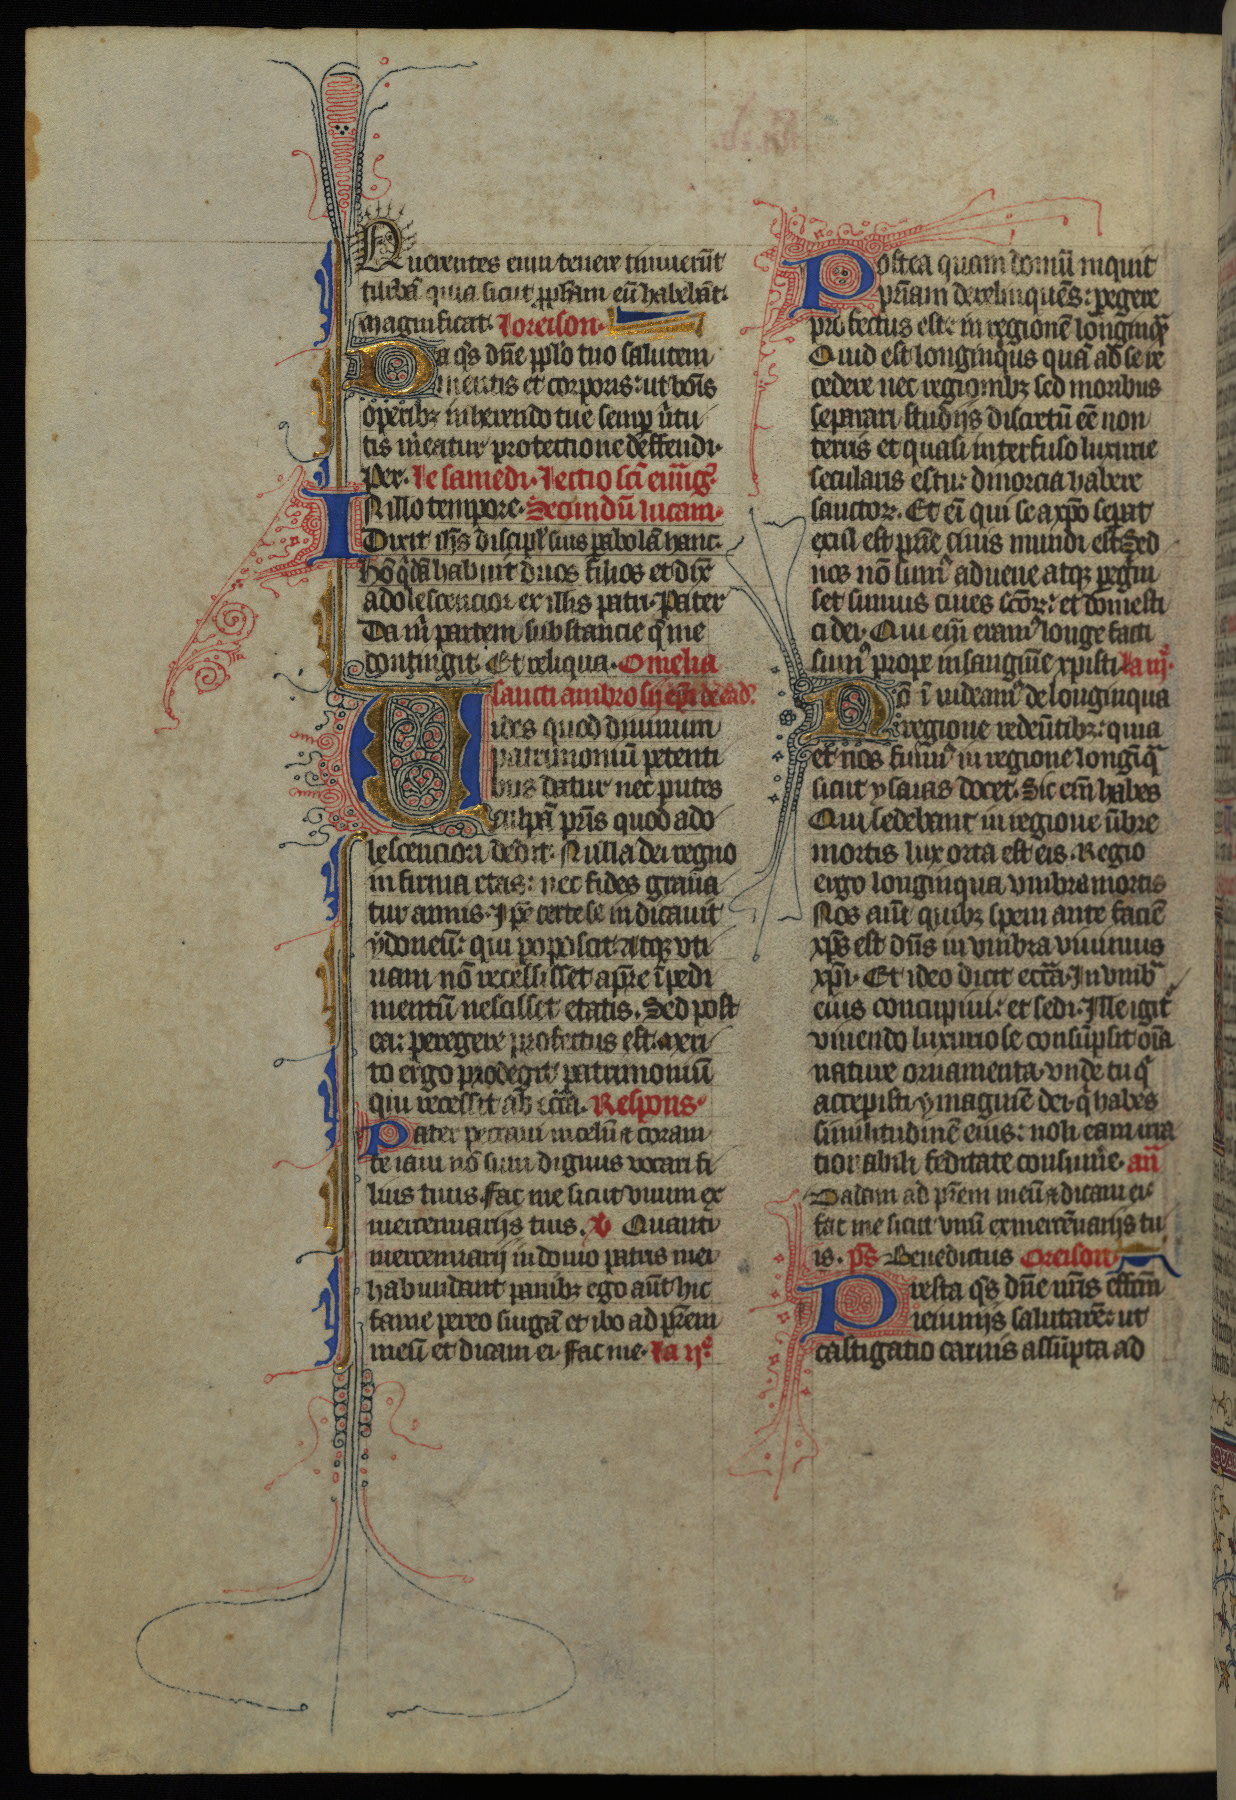 Querentes enim tenere timuerūt
turbā quia sicut pphām eū habebāt.
magnificat. loreison.
Da qs dñe pplo tuo salutem
mentis et corporis: ut bōis
operibz inherendo tue semp ūtu
tis mereatur protectione deffendi.
Per. le samedi. lectio scī euug.
IN illo tempore. Secundū lucam.
Dixit ihs discipl' suis pabolā hanc.
hō qdā habuit duos filios et dix̄
adolescencior ex illis patri. Pater
Da m partem substancie q̄ me
contingit. Et reliqua. Omelia
sancti ambrosij epi de ead'.
Uides quod diuinum
patrimoniū petenti
bus datur nec putes
culpā pris quod ado
lescenciori dedit. Nulla dei regno
infirma etas: nec fides graua
tur annis. Ipe certe se iudicauit
ydoneū: qui poposcit. Atqz uti
nam nō recessisset a pre īpedi
mentū nescisset etatis. Sed post
ea: peregere profectus est. Meri
to ergo prodegit patrimoniū
qui recessit ab eccā. Respons.
Pater peccaui in celū & coram
te iam nō sum dignus vocari fi
lius tuus. fac me sicut vnum ex
mercenarijs tuis. V Quanti
mercenarij in domo patris mei
habundant panibz ego aūt hic
fame pereo surgā et ibo ad prem
meū et dicam ei. fac me. la ij.
Postea quam domū inquit
p̄riam derelinquēs: pegere
profectus est: in regionē longinq̄
Quid est longinqus quā ad se re
cedere nec regionibz sed moribus
separari studijs discretū ēē non
terris et quasi interfuso luxurie
secularis estu: diuorcia habere
sanctor. Et ei qui se a xpō sepat
exul est prie ciuis mundi est. Sed
nos nō sum' aduene atqz pegrini
set sumus ciues scōr: et domesti
ci dei. Qui eīm eram' longe facti
sum' prope in sanguine xpisti. la iij.
Nō ī uideam' de longinqua
regione redeūtibz: quia
et nos fuim' in regione longīq
sicut ysaias docet. Sic eīm habes
Qui sedebant in regione ūbre
mortis lux orta est eis. Regio
ergo longinqua vmbra mortis
Nos aūt quibz spem ante faciē
xps est dñs in vmbra viuimus
xpi. Et ideo dicit eccā. In vmb
eius concupiui: et sedi. Ille igit'
viuendo luxuriose consūpsit oīa
nature ornamenta. vnde tu q
accepisti ymaginē dei. q habes
similitudinē eius: noli eam irra
tionabili feditate consumē. añ
Vadam ad prem meū & dicam ei.
fac me sicut vnū ex mercēnarijs tu
is. ps Benedictus Oreison
Presta qs dñe nris effcm
ieiunijs salutarē: ut
castigatio carnis assūpta ad